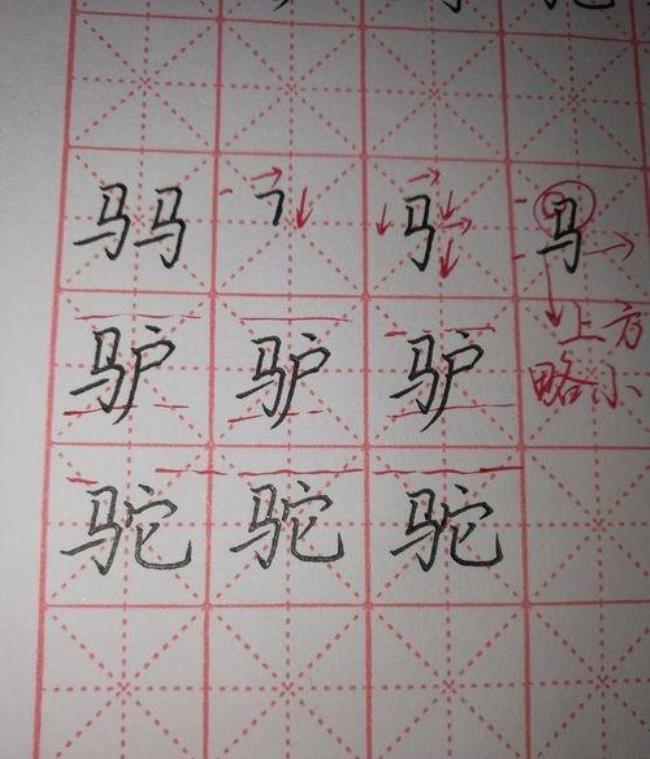 马马 ㇕ 马 马
驴 驴 驴 上方
略小
驼 驼 驼